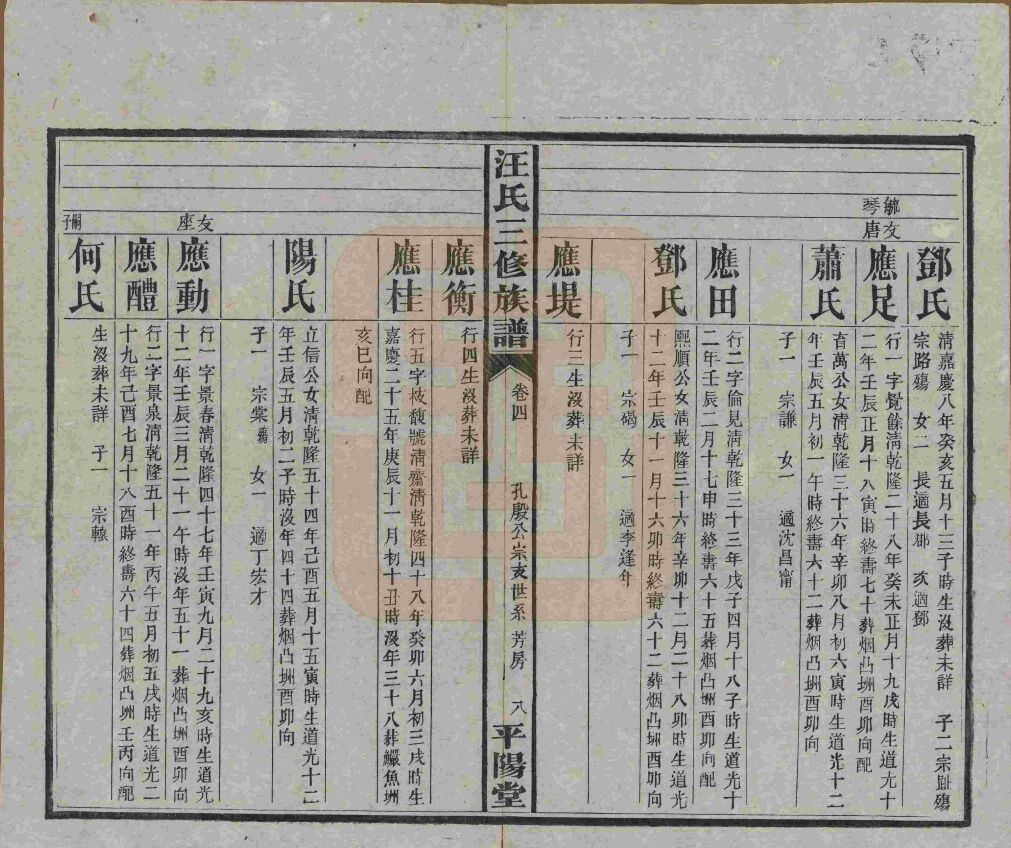 毓琴
友唐
鄧氏
清嘉慶八年癸亥五月十三子時生沒葬未詳 子二宗跐殤
宗路殤 女二 長適長鄀 次適鄧
應足
行一字覺餘清乾隆二十八年癸未正月十九戌時生道光十
二年壬辰正月十八寅時終壽七十葬烟凸坤酉卯向配
蕭氏
酋萬公女清乾隆三十六年辛卯八月初六寅時生道光十二
年壬辰五月初一午時終壽六十二葬烟凸坤酉卯向
子一 宗謙 女一 適沈昌甯
應田
行二字倫見清乾隆三十三年戊子四月十八子時生道光十
二年壬辰二月十七申時終壽六十五葬烟凸坤酉卯向配
鄧氏
熙順公女清乾隆三十六年辛卯十二月二十八卯時生道光
十二年壬辰十一月十六卯時終壽六十二葬烟凸坤酉卯向
子一 宗碣 女一 適李逢年
應堤
行三生沒葬未詳
汪氏三修族譜
卷四
孔殷公宗支世系 芳房 八
平陽堂
應衡
行四生沒葬未詳
應桂
行五字枝馥號清齋清乾隆四十八年癸卯六月初三戌時生
嘉慶二十五年庚辰十一月初十丑時沒年三十八葬鱺魚洲
亥巳向配
陽氏
立信公女清乾隆五十四年己酉五月十五寅時生道光十二
年壬辰五月初二子時沒年四十四葬烟凸坤酉卯向
子一 宗棠殤 女一 適丁宏才
友座
應動
行一字景春清乾隆四十七年壬寅九月二十九亥時生道光
十二年壬辰三月二十一午時沒年五十一葬烟凸坤酉卯向
應醴
行二字景泉清乾隆五十一年丙午五月初五戌時生道光二
十九年己酉七月十八酉時終壽六十四葬烟凸坤壬丙向配
嗣子
何氏
生沒葬未詳 子一 宗轅